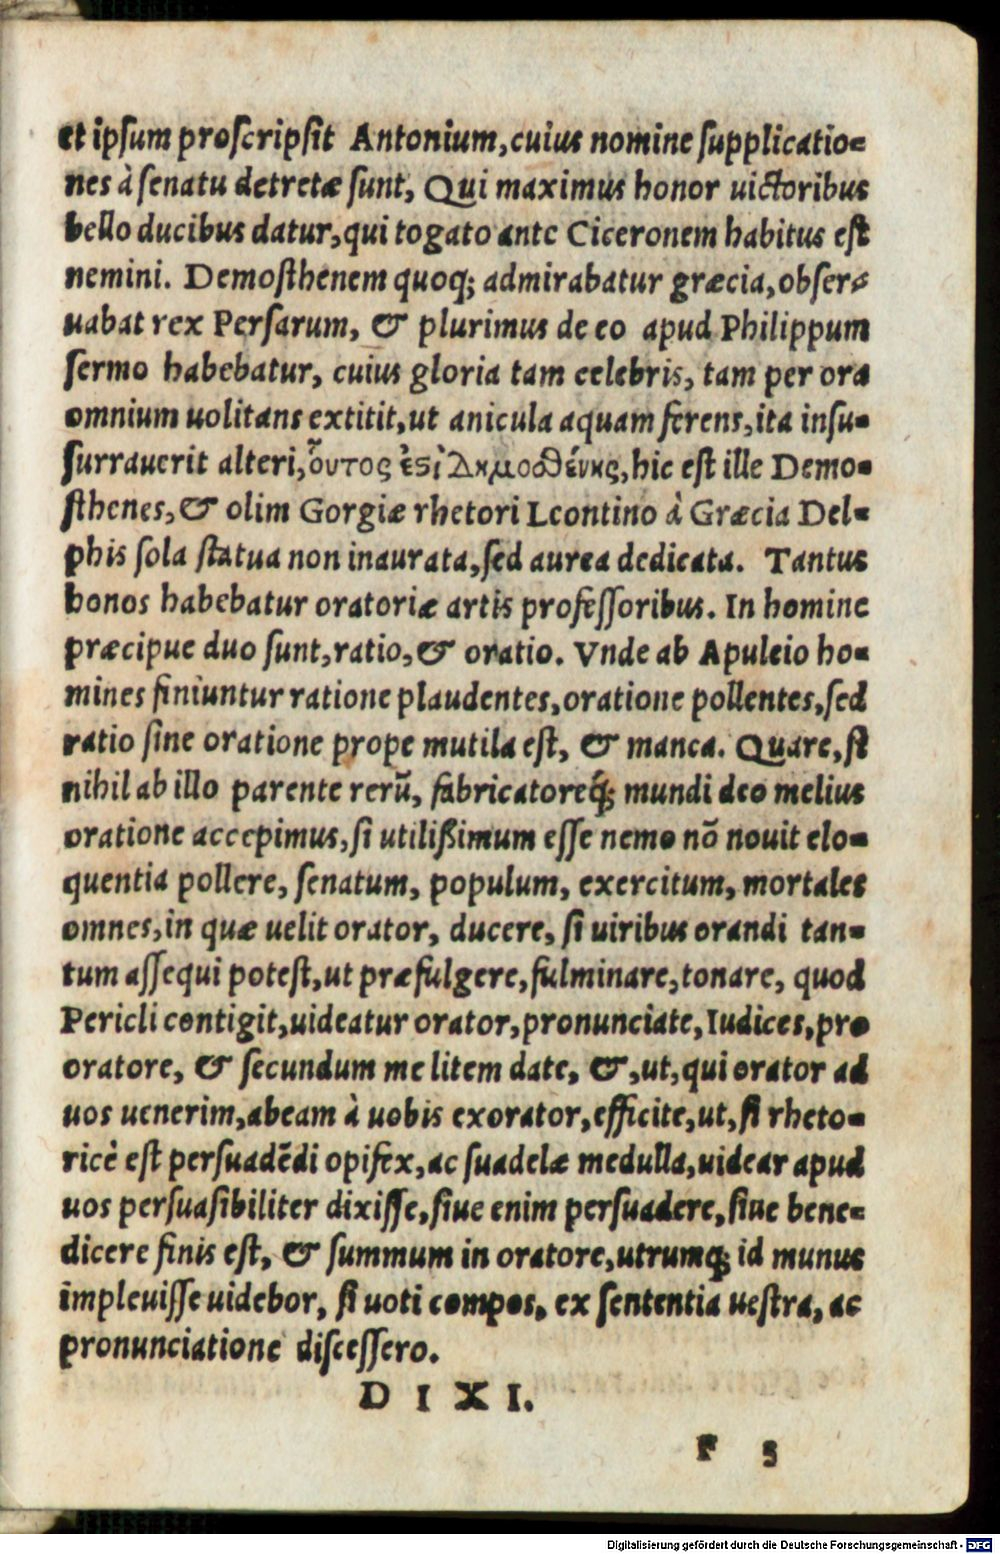 et ipſum proſcripſit Antonium, cuius nomine ſupplicatio-
nes à ſenatu detretæ ſunt, Qui maximus honor uictoribus
bello ducibus datur, qui togato ante Ciceronem habitus eſt
nemini. Demoſthenem quoq; admirabatur græcia, obſer-
uabat rex Perſarum, & plurimus de eo apud Philippum
ſermo habebatur, cuius gloria tam celebris, tam per ora
omnium uolitans extitit, ut anicula aquam ferens, ita inſu-
ſurrauerit alteri, οὗτος ἐϛὶ Δημοσθένης, hic eſt ille Demo-
ſthenes, & olim Gorgiæ rhetori Leontino à Græcia Del-
phis ſola ſtatua non inaurata, ſed aurea dedicata. Tantus
honos habebatur oratoriæ artis profeſſoribus. In homine
præcipue duo ſunt, ratio, & oratio. Vnde ab Apuleio ho-
mines finiuntur ratione plaudentes, oratione pollentes, ſed
ratio ſine oratione prope mutila eſt, & manca. Quare, ſi
nihil ab illo parente rerū, fabricatoreq́; mundi deo melius
oratione accepimus, ſi utilißimum eſſe nemo nō nouit elo-
quentia pollere, ſenatum, populum, exercitum, mortales
omnes, in quæ uelit orator, ducere, ſi uiribus orandi tan-
tum aſſequi poteſt, ut præfulgere, fulminare, tonare, quod
Pericli contigit, uideatur orator, pronunciate, Iudices, pro
oratore, & ſecundum me litem date, &, ut, qui orator ad
uos uenerim, abeam à uobis exorator, efficite, ut, ſi rheto-
ricè eſt perſuadēdi opifex, ac ſuadelæ medulla, uidear apud
uos perſuaſibiliter dixiſſe, ſiue enim perſuadere, ſiue bene-
dicere finis eſt, & ſummum in oratore, utrumq; id munus
impleuiſſe uidebor, ſi uoti compos, ex ſententia ueſtra, ac
pronunciatione diſceſſero.
D I X I.
F 5
Digitalisierung gefördert durch die Deutsche Forschungsgemeinschaft - DFG